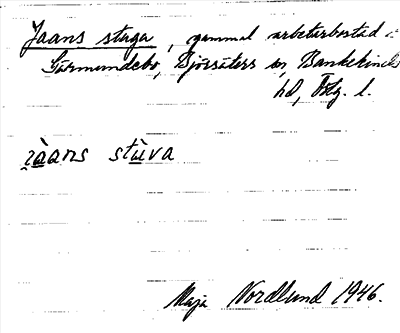 Jaans stuga, gammal arbetarbostad i
Gärmundebo, Björsäters sn, Bankekinds
hd, Östg. l.
jàans stùva
Maja Nordlund 1946.